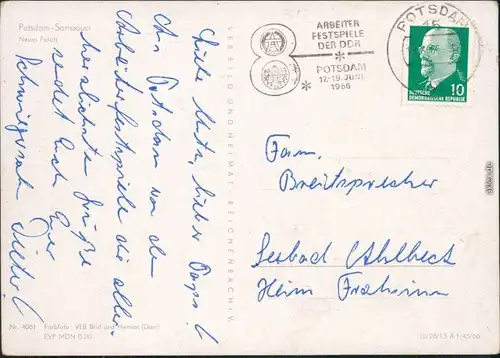 Potsdam-Sanssouci
Neues Palais
Liebe Mutz, lieber Papa!
Aus Potsdam von den
Arbeiterfestspielen die aller-
herzlichsten Grüße
sendet Euch Euer
Schwiegersohn Dieter!
VEB BILD UND HEIMAT · REICHENBACH I. V.
ARBEITER
FESTSPIELE
DER DDR
POTSDAM
17.-19. JUNI
1966
POTSDAM
15
10
DEUTSCHE
DEMOKRATISCHE REPUBLIK
Fam.
Breitsprecher
Seebad Ahlbeck
Heim Frohsinn
Nr. 4061 Farbfoto: VEB Bild und Heimat (Darr)
EVP MDN 0,20